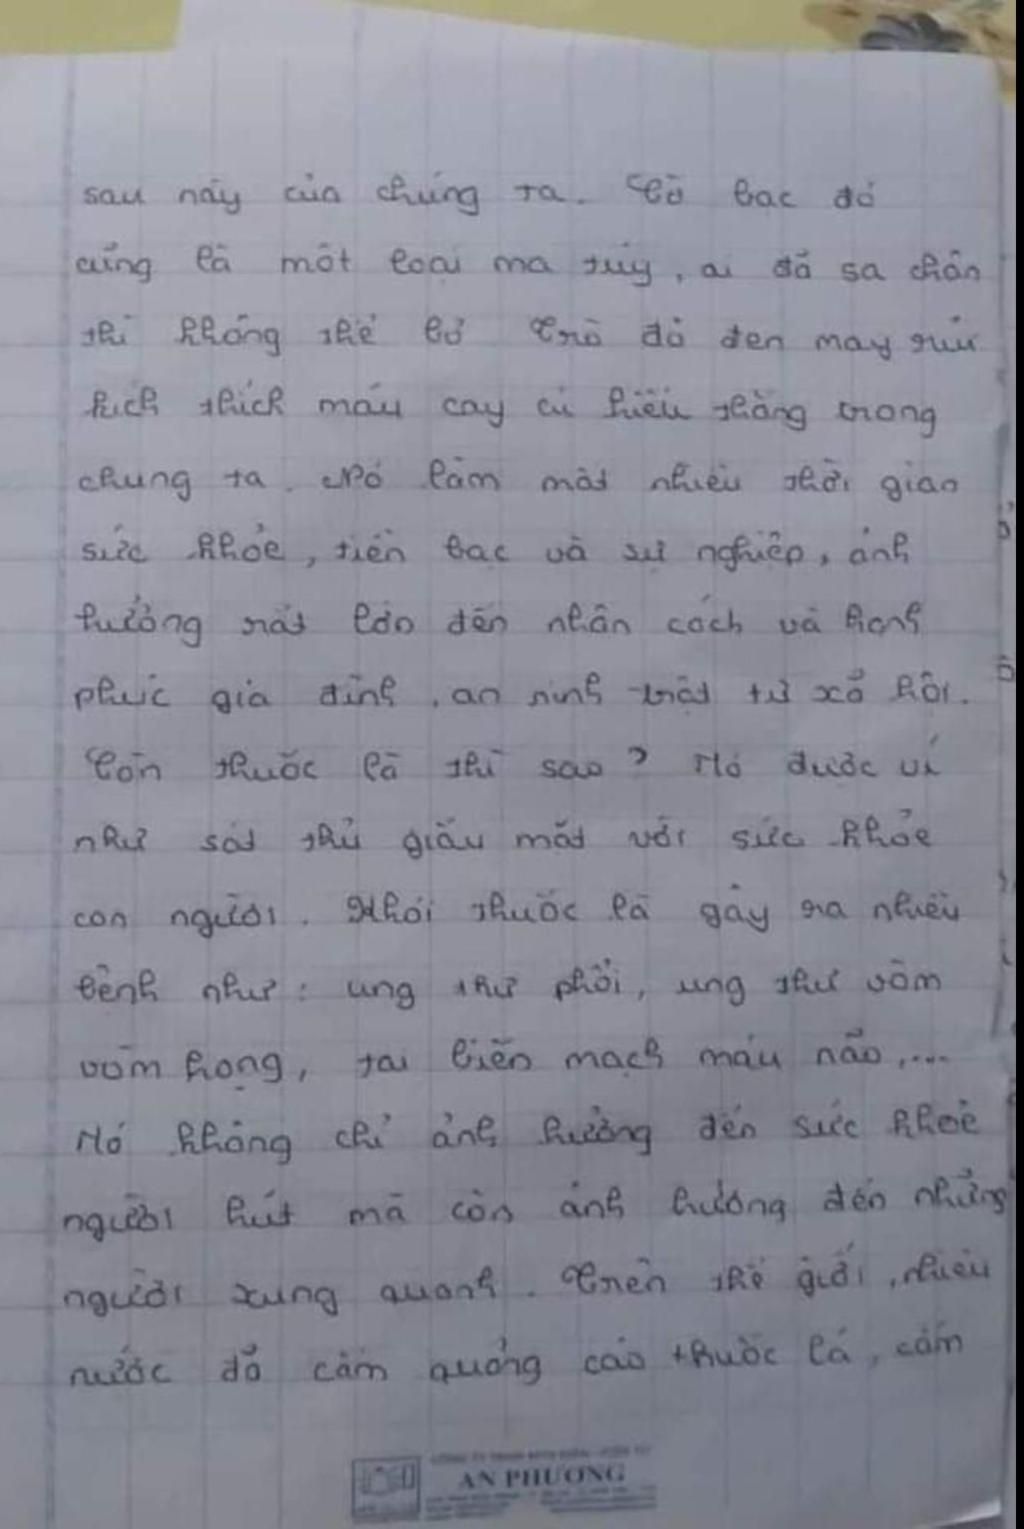 sau này của chúng ta. Cờ bạc đó
cũng là một loại ma túy, ai đã sa chân
thì không thể bỏ Trò đỏ đen may rủi
kích thích máu cay cú hiếu thắng trong
chung ta. Nó làm mất nhiều thời gian
sức khỏe, tiền bạc và sự nghiệp, ảnh
hưởng rất lớn đến nhân cách và hạnh
phúc gia đình, an ninh trật tự xã hội.
Còn thuốc lá thì sao? Nó được ví
như sát thủ giấu mặt với sức khỏe
con người. Khói thuốc lá gây ra nhiều
bệnh như: ung thư phổi, ung thư vòm
vòm họng, tai biến mạch máu não,...
Nó không chỉ ảnh hưởng đến sức khỏe
người hút mà còn ảnh hưởng đến những
người xung quanh. Trên thế giới, nhiều
nước đã cấm quảng cáo thuốc lá, cấm
AN PHƯƠNG